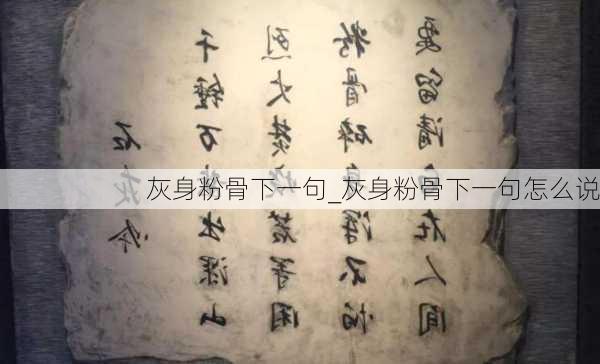 石灰吟
千锤万凿出深山
烈火焚烧若等闲
粉骨碎身浑不怕
要留清白在人间
灰身粉骨下一句_灰身粉骨下一句怎么说